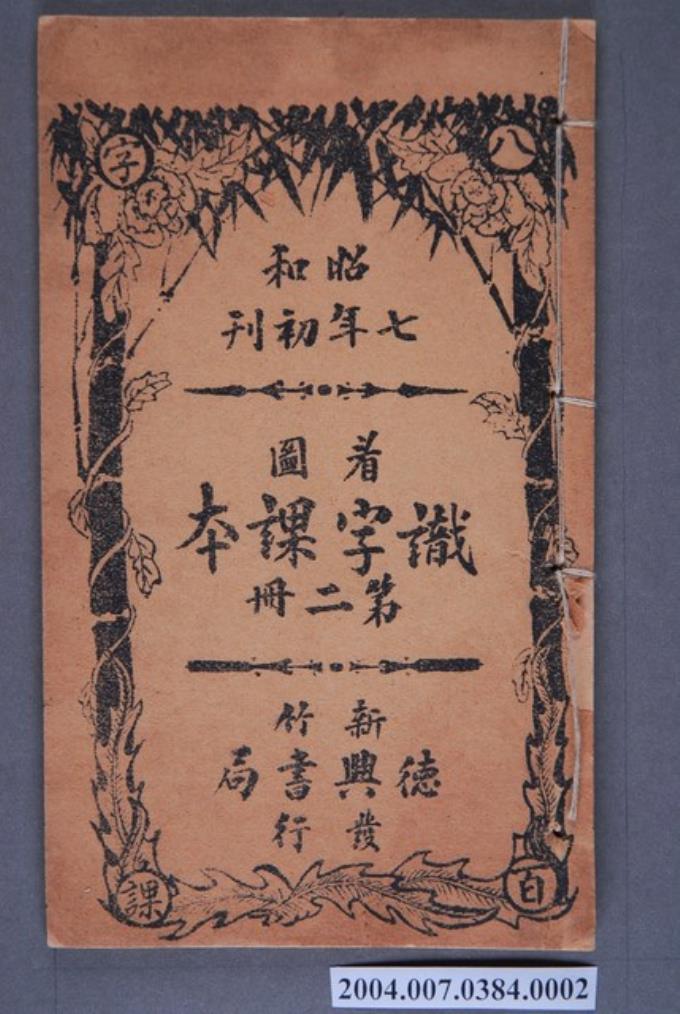 八百字課
昭和
七年初刊
看圖
識字課本
第二冊
新竹
德興書局
發行
2004.007.0384.0002